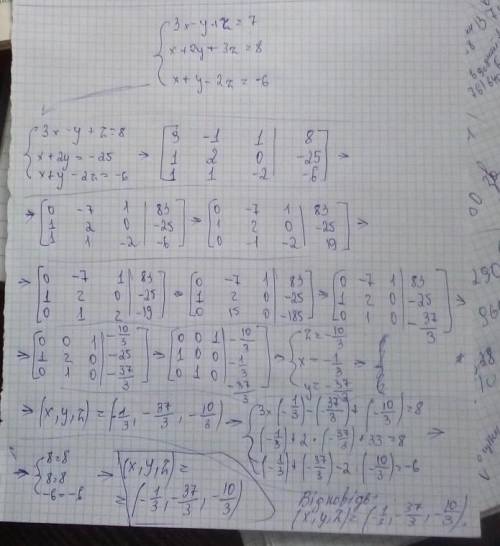 3x-y+z=7
x+2y+3z=8
x+y-2z=-6
3x-y+z=8
x+2y=-25
x+y-2z=-6
→ [3 -1 1 | 8
1 2 0 | -25
1 1 -2 | -6] →
→ [0 -7 1 | 83
1 2 0 | -25
1 1 -2 | -6] → [0 -7 1 | 83
1 2 0 | -25
0 -1 -2 | 19] →
→ [0 -7 1 | 83
1 2 0 | -25
0 1 2 | -19] → [0 -7 1 | 83
1 2 0 | -25
0 15 0 | -185] → [0 -7 1 | 83
1 2 0 | -25
0 1 0 | -37/3] →
→ [0 0 1 | -10/3
1 2 0 | -25
0 1 0 | -37/3] → [0 0 1 | -10/3
1 0 0 | -1/3
0 1 0 | -37/3] → {z=-10/3
x=-1/3
y=-37/3 →
→ (x,y,z) = (-1/3, -37/3, -10/3) → {3×(-1/3)-(-37/3)+(-10/3)=8
(-1/3)+2·(-37/3)+33=8
(-1/3)+(-37/3)-2·(-10/3)=-6 →
→ {8=8
8=8
-6=-6 → (x,y,z)=
=(-1/3, -37/3, -10/3)
Відповідь:
(x,y,z)=(-1/3, -37/3, -10/3).
290
96